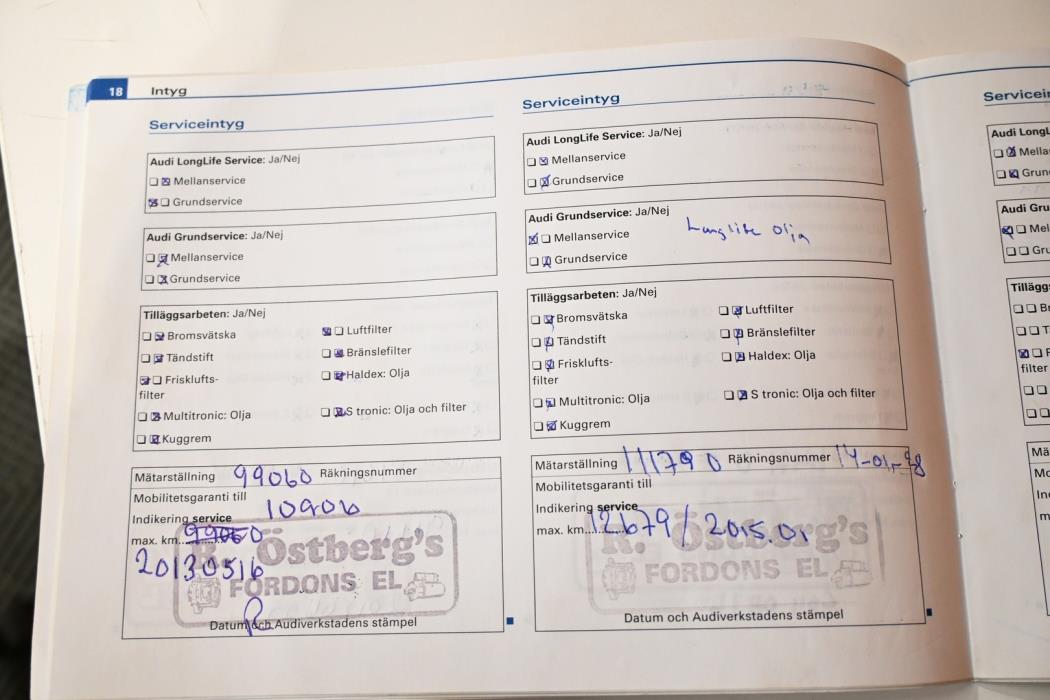 18 Intyg
Serviceintyg
Audi LongLife Service: Ja/Nej
Mellanservice
Grundservice
Audi Grundservice: Ja/Nej
Mellanservice
Grundservice
Tilläggsarbeten: Ja/Nej
Bromsvätska Luftfilter
Tändstift Bränslefilter
Frisklufts- Haldex: Olja
filter
Multitronic: Olja S tronic: Olja och filter
Kuggrem
Mätarställning 99060 Räkningsnummer
Mobilitetsgaranti till
Indikering service 10906
max. km.
20130516
R. Östberg's
FORDONS EL
Datum och Audiverkstadens stämpel
Serviceintyg
Audi LongLife Service: Ja/Nej
Mellanservice
Grundservice
Audi Grundservice: Ja/Nej
Mellanservice Longlife olja
Grundservice
Tilläggsarbeten: Ja/Nej
Bromsvätska Luftfilter
Tändstift Bränslefilter
Frisklufts- Haldex: Olja
filter
Multitronic: Olja S tronic: Olja och filter
Kuggrem
Mätarställning 111790 Räkningsnummer
Mobilitetsgaranti till
Indikering service
max. km. 12679 / 2015.01
R. Östberg's
FORDONS EL
Datum och Audiverkstadens stämpel
Audi